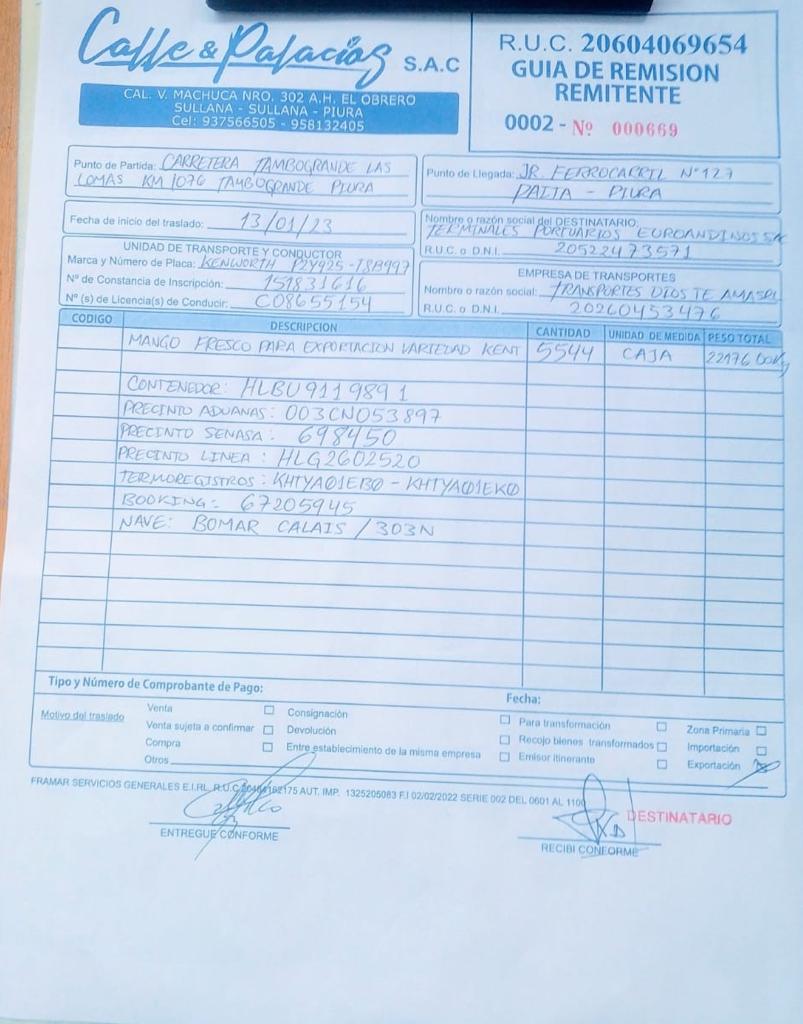 Calle & Palacios S.A.C
CAL. V. MACHUCA NRO. 302 A.H. EL OBRERO
SULLANA - SULLANA - PIURA
Cel: 937566505 - 958132405
R.U.C. 20604069654
GUIA DE REMISION
REMITENTE
0002 - Nº 000669
Punto de Partida: CARRETERA TAMBOGRANDE LAS
LOMAS KM 1076 TAMBOGRANDE PIURA
Punto de Llegada: JR. FERROCARRIL Nº 127
PAITA - PIURA
Fecha de inicio del traslado: 13/01/23
Nombre o razón social del DESTINATARIO:
TERMINALES PORTUARIOS EUROANDINOS
R.U.C. o D.N.I. 20522473571
UNIDAD DE TRANSPORTE Y CONDUCTOR
Marca y Número de Placa: KENWORTH P2Y925 - T8B997
Nº de Constancia de Inscripción: 151831616
Nº (s) de Licencia(s) de Conducir: C08655154
EMPRESA DE TRANSPORTES
Nombre o razón social: TRANSPORTES DIOS TE AMA SRL
R.U.C. o D.N.I. 20260453476
CODIGO DESCRIPCION CANTIDAD UNIDAD DE MEDIDA PESO TOTAL
MANGO FRESCO PARA EXPORTACION VARIEDAD KENT 5544 CAJA 22176.00Kg
CONTENEDOR: HLBU911989 1
PRECINTO ADUANAS: 003CN053897
PRECINTO SENASA: 698450
PRECINTO LINEA: HLG2602520
TERMOREGISTROS: KHTYAØ1EBØ - KHTYAØ1EKØ
BOOKING: 67205945
NAVE: BOMAR CALAIS / 303N
Tipo y Número de Comprobante de Pago:
Fecha:
Motivo del traslado
Venta
Consignación
Para transformación
Zona Primaria
Venta sujeta a confirmar
Devolución
Recojo bienes transformados
Importación
Compra
Entre establecimiento de la misma empresa
Emisor itinerante
Exportación
Otros
FRAMAR SERVICIOS GENERALES E.I.RL. R.U.C. AUT. IMP. 1325205083 F.I 02/02/2022 SERIE 002 DEL 0601 AL 1100
ENTREGUE CONFORME
DESTINATARIO
RECIBI CONFORME